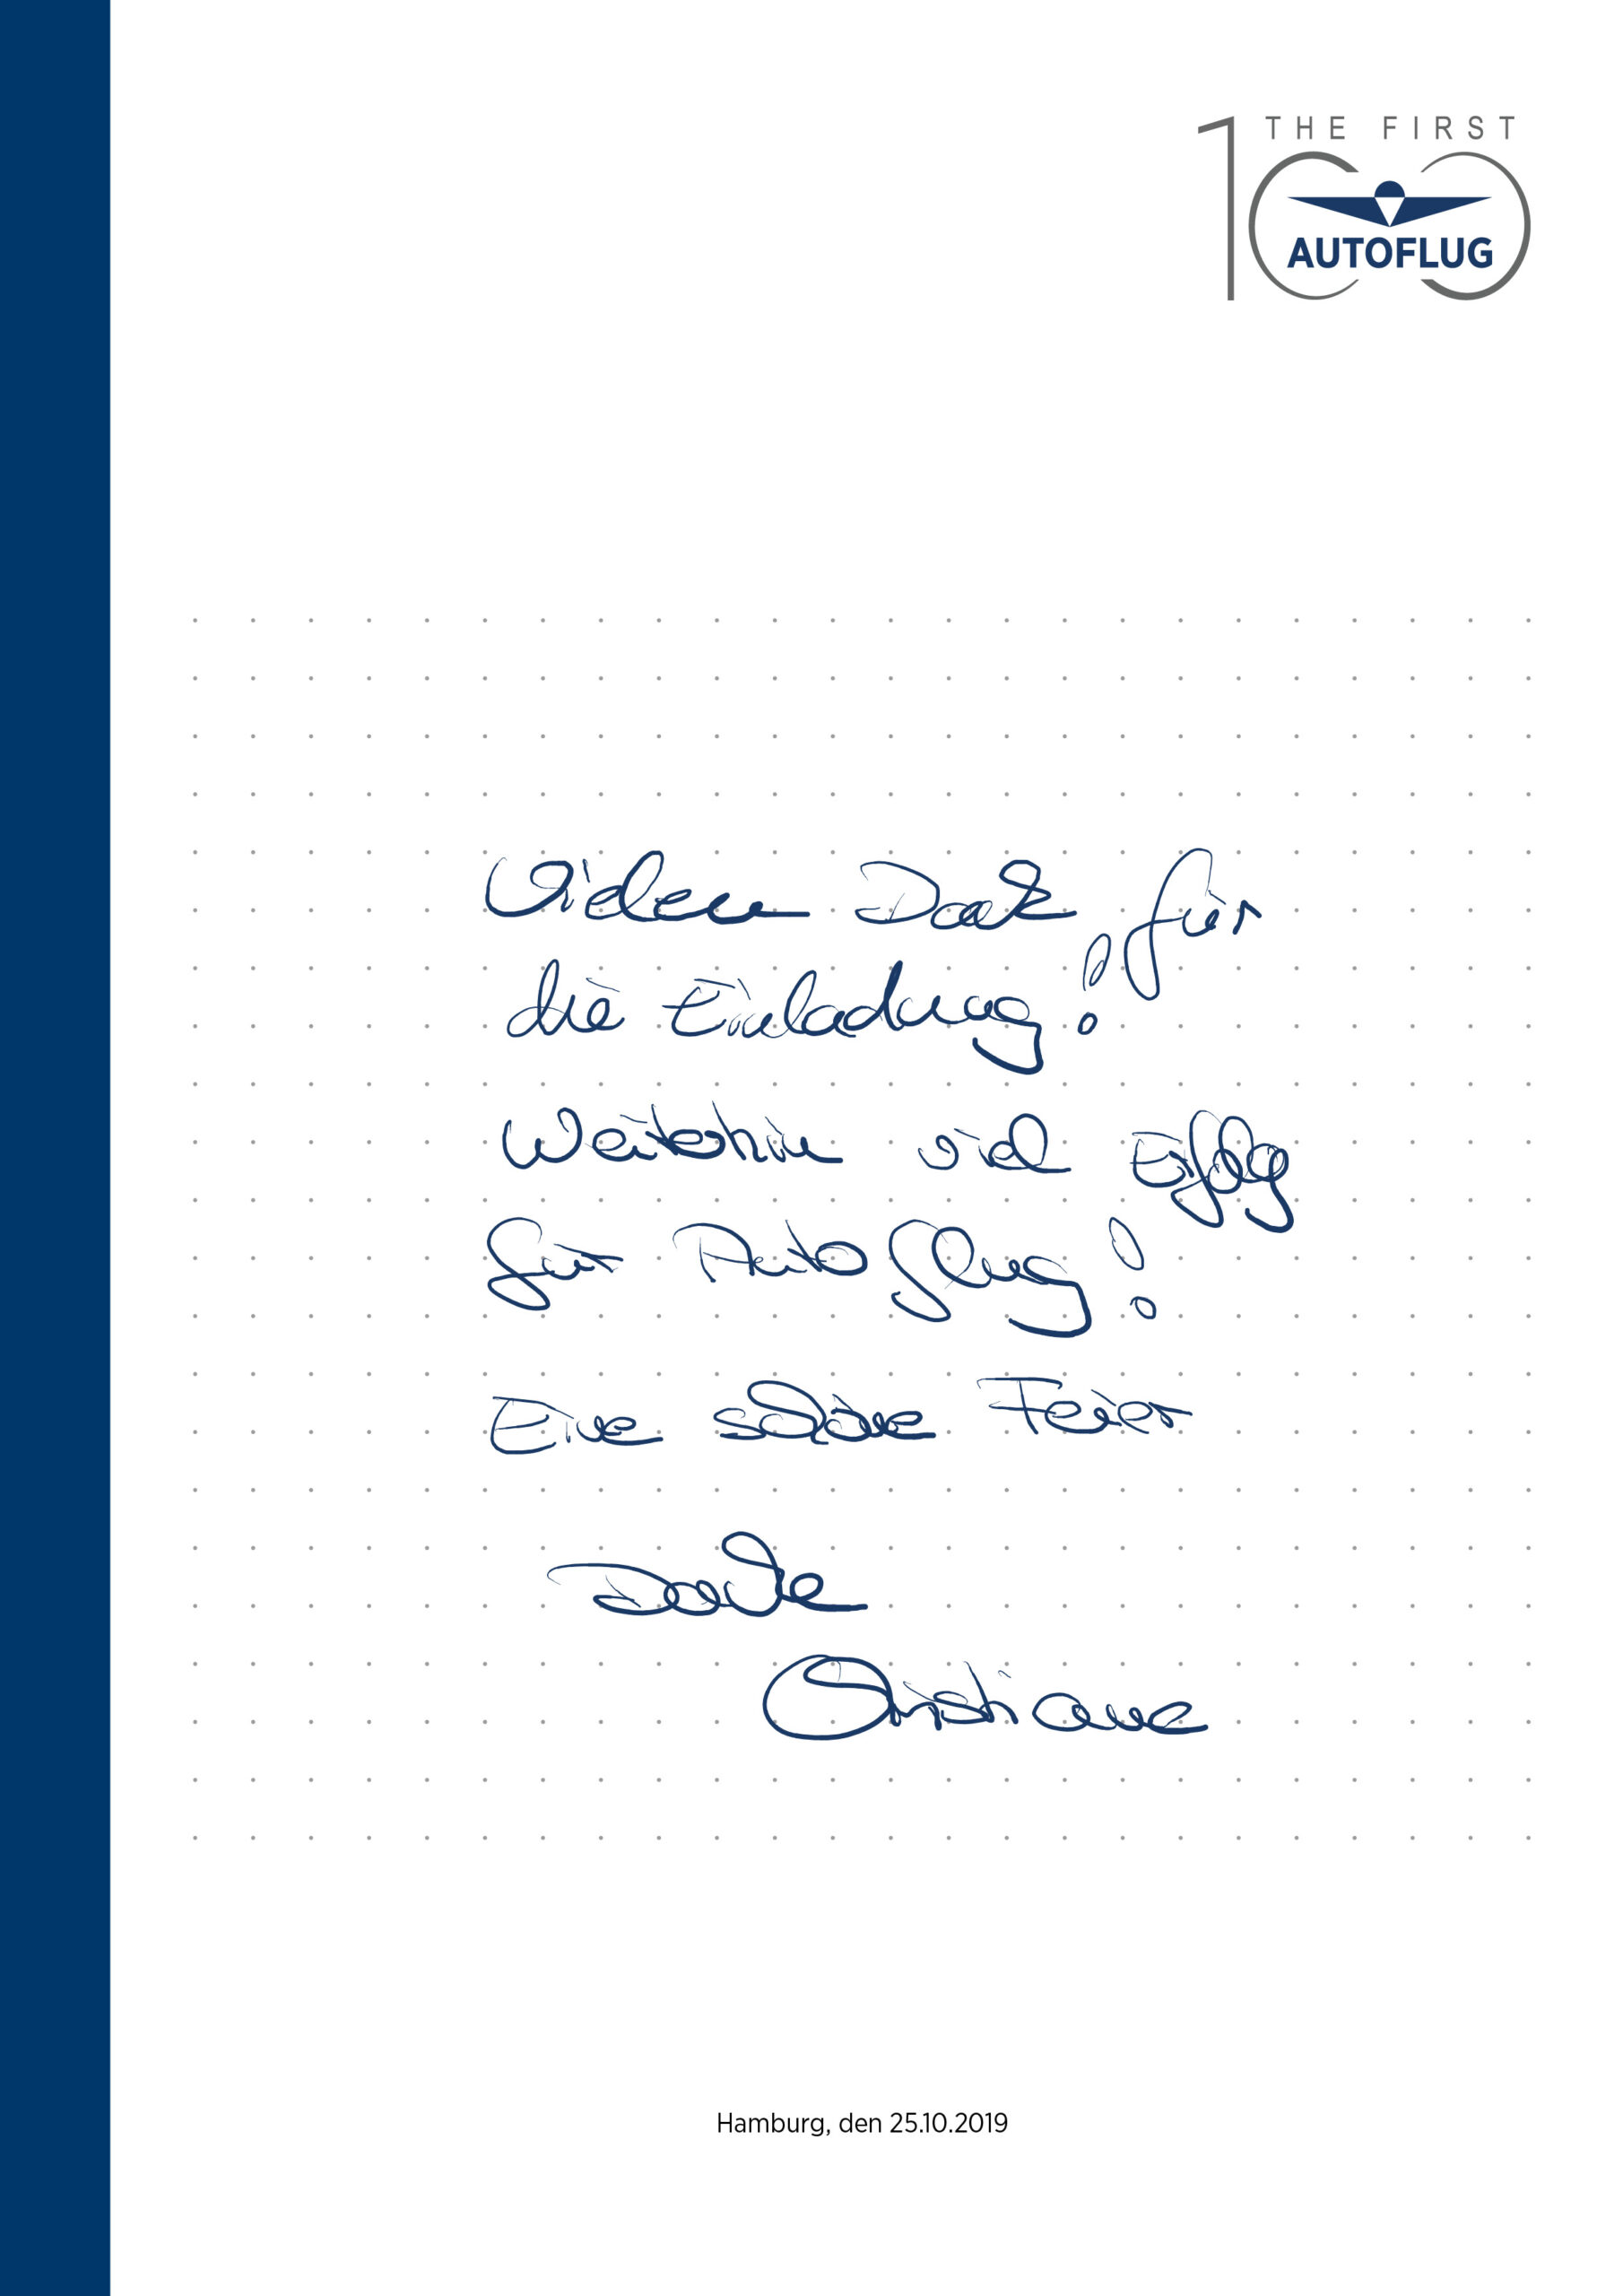 THE FIRST
100
AUTOFLUG
Vielen Dank für
die Einladung!
Weiterhin viel Erfolg
für Autoflug!
Eine schöne Feier
Danke
Christiane
Hamburg, den 25.10.2019